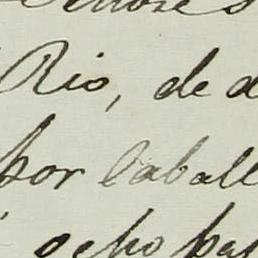 Rio, de d
por Caball
ocho pa